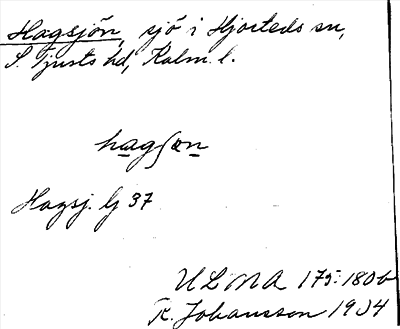 Hagsjön, sjö i Hjorteds sn,
S. Tjusts hd, Kalm. l.
hagʃøn
Hagsj. lj 37
ULMA 175:180b
R. Johansson 1904